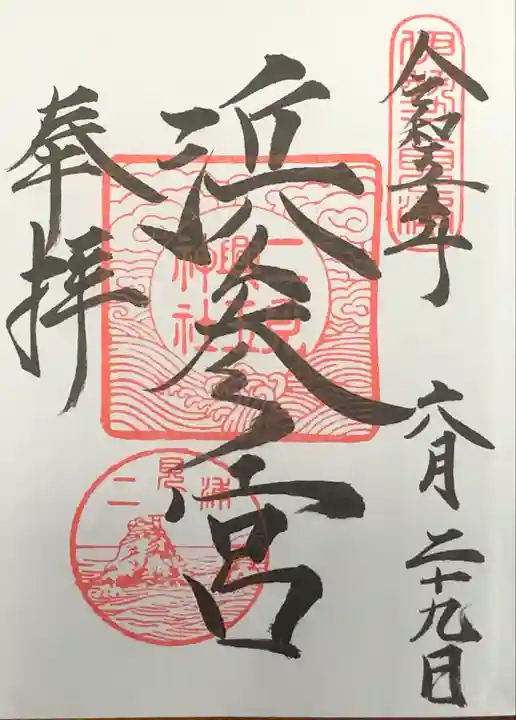 令和五年 六月二十九日
浜参宮
奉拝
二見
興玉
神社
二見浦